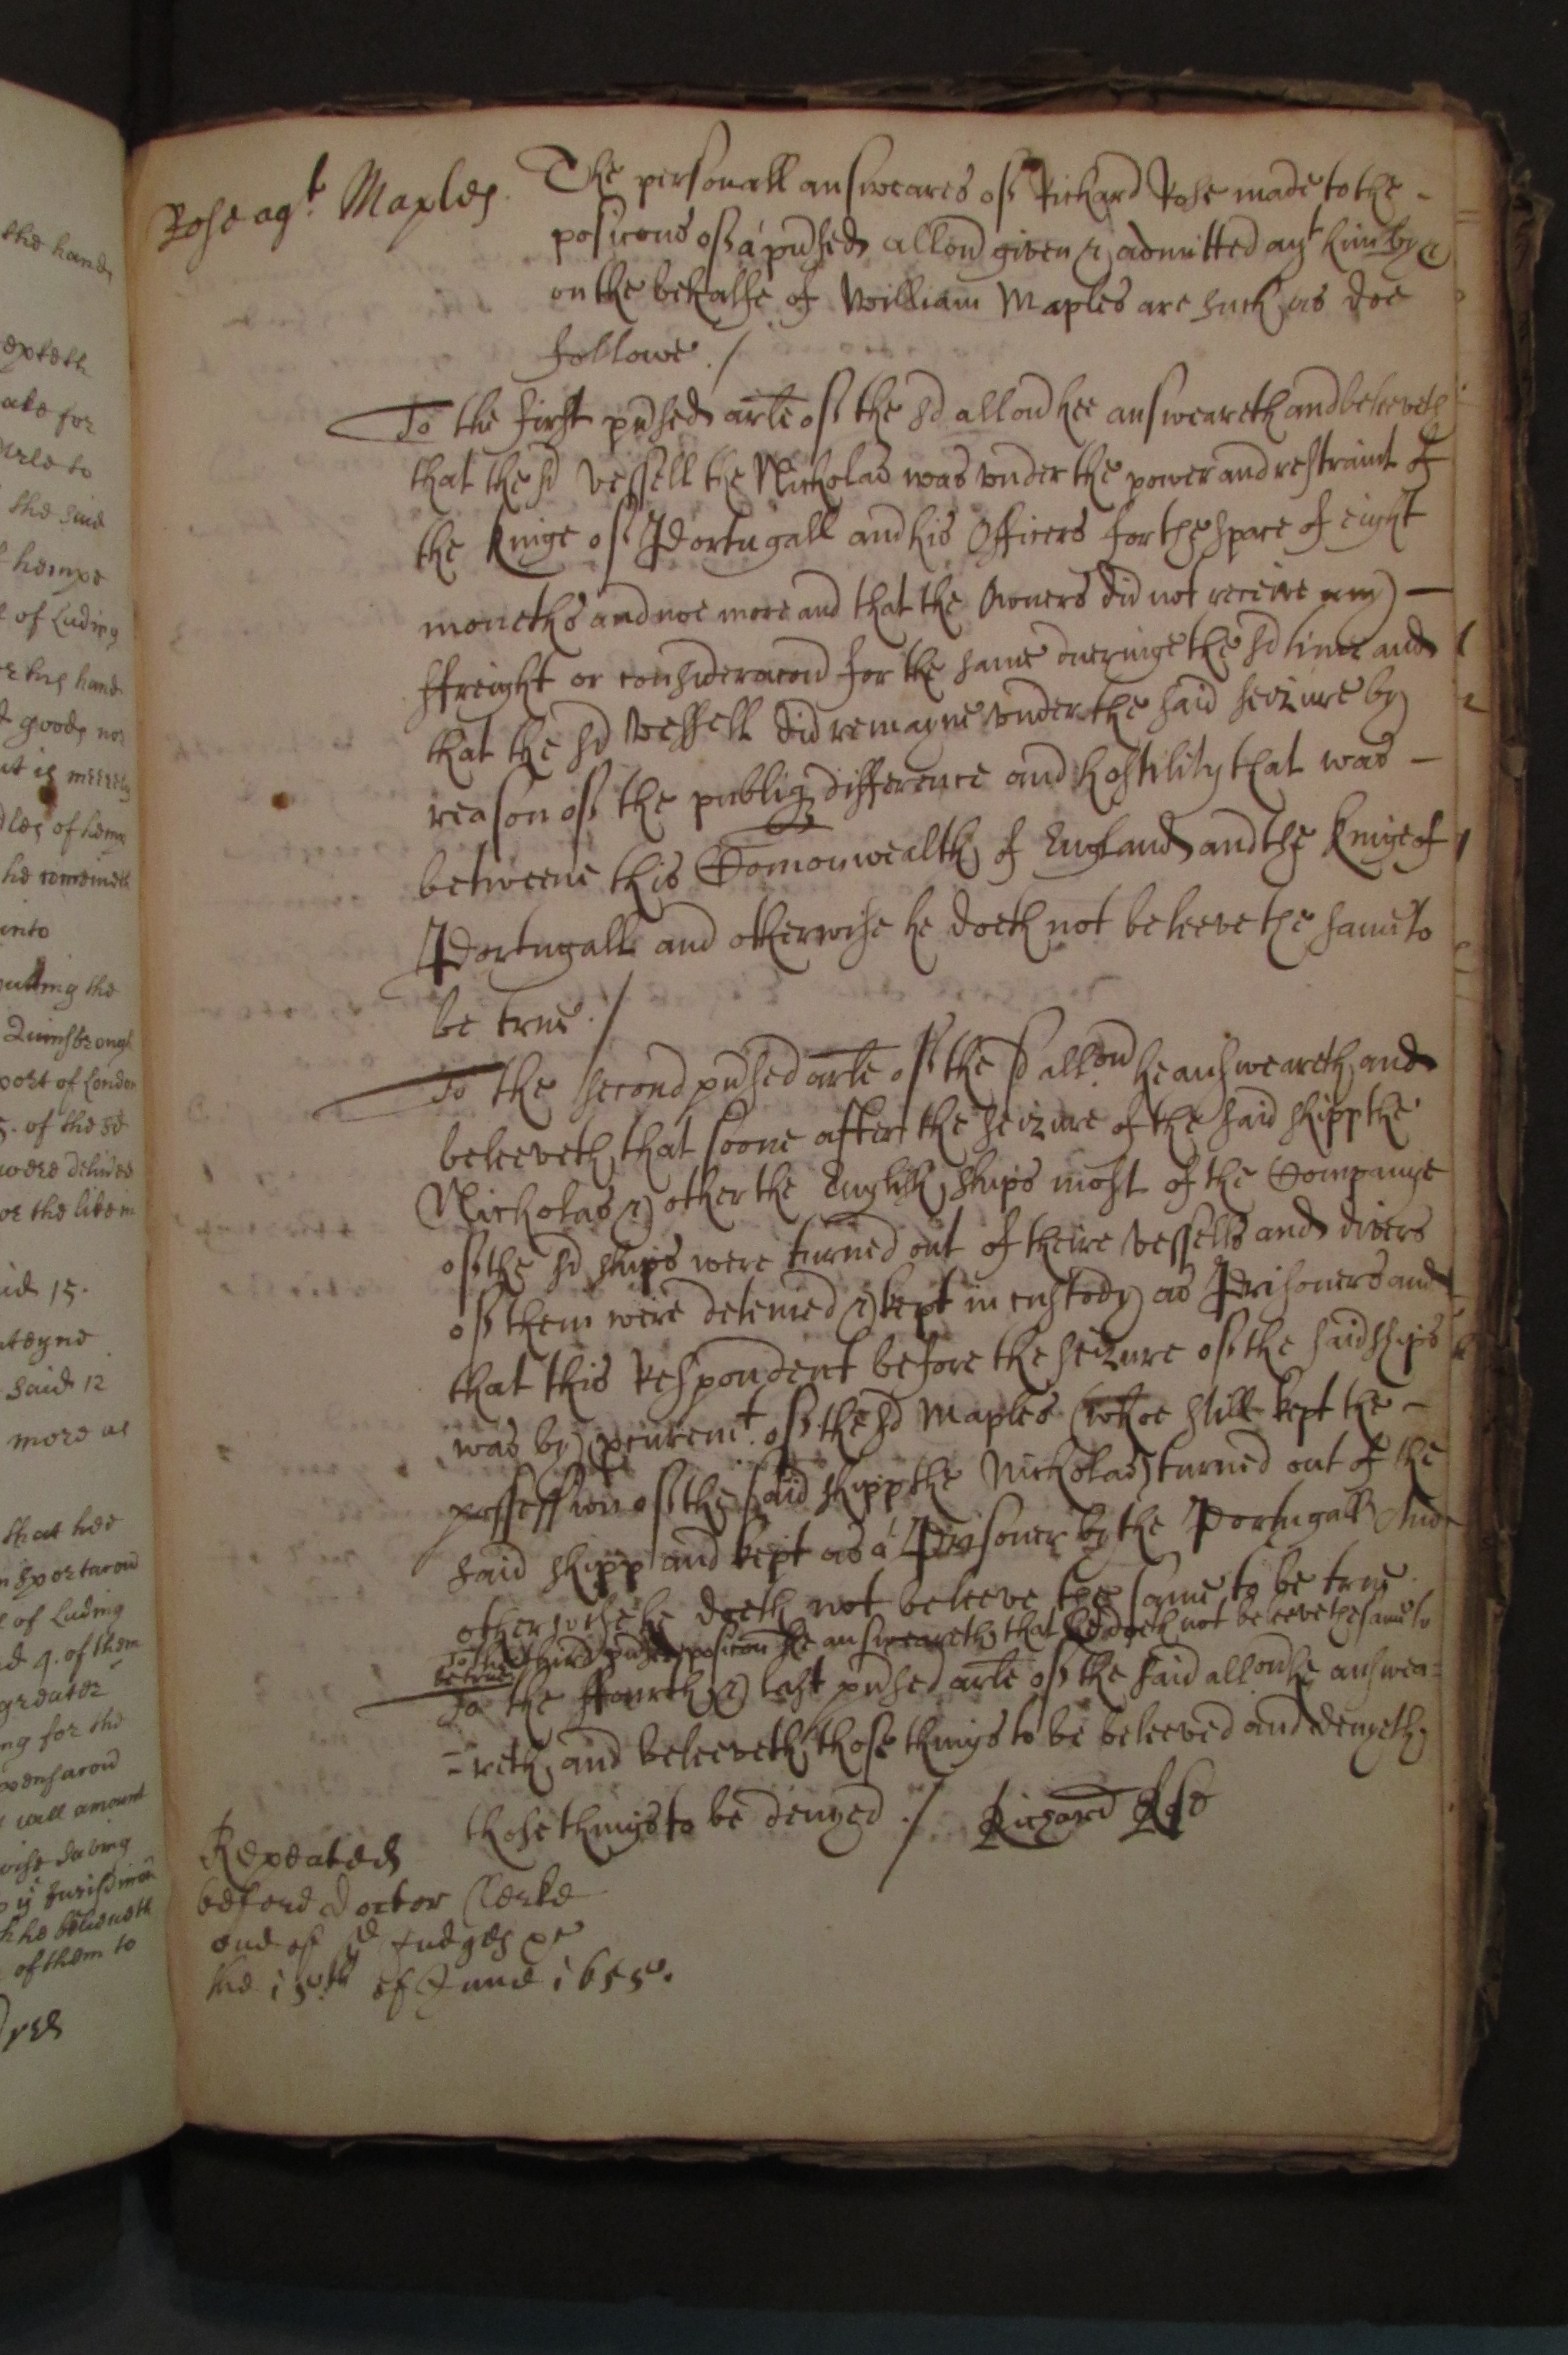 the hands
Rose agt Maples.
The personall answeares of Richard Rose made to the -
posicons of a pñsed allon given & admitted agt him by &
on the behalfe of William Maples are such as doe
followe ./
To the first pñsed arle of the sd allon hee answeareth and beleeveth
that the sd vessell the Nicholas was vnder the power and restraint of
the Kinge of Portugall and his Officers for the space of eight
moneths and noe more and that the Owners did not receive any -
ffreight or consideracon for the same dureinge the sd time and
that the sd vessell did remayne vnder the said seizure by
reason of the publiq difference and hostility that was -
betweene this Comonwealth of England and the Kinge of
Portugall and otherwise he doeth not beleeve the same to
be true ./
To the second pñsed arle of the sd allon he answeareth and
beleeveth that soone after the seizure of the said shipp the
Nicholas & other the English ships most of the Companye
of the sd ships were turned out of theire vessells and divers
of them were deteined & kept in custody as Prisoners and
that this Respondent before the seizure of the said ships
was by procuremt. of the sd Maples (whoe still kept the -
possession of the said shipp the Nicholas) turned out of the
said shipp and kept as a Prisoner by the Portugall And
otherwise he doeth not beleeve the same to be true.
To the third pñsed posicon he answeareth that he doeth not beleeve the same to
be true
To the ffourth & last pñsed arle of the said allon he answea=
=reth and beleeveth those things to be beleeved and denyeth
those things to be denyed ./ Richard Rose
Repeated
before Doctor Clerke
one of ye Judges &c
the 15th of June 1655.
expteth
ake for
the said
hempe
of Luding
er his hand
goods nor
it is meerely
of hemp
he remaineth
into
putting the
port of London
5. of the sd
or the like in
id 15.
said 12
more as
that hee
of Luding
ed 9. of them
greater
ing for the
will amount
of them to